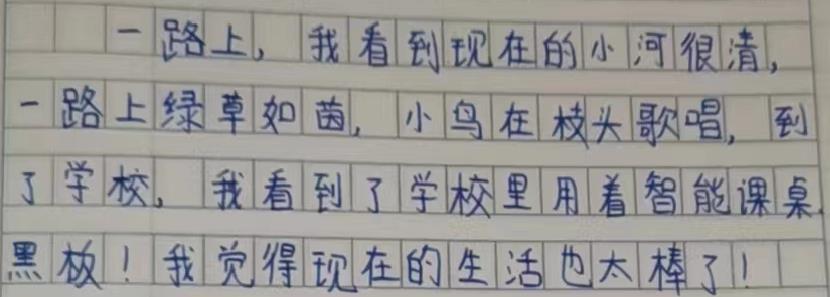 一路上，我看到现在的小河很清，
一路上绿草如茵，小鸟在枝头歌唱，到
了学校，我看到了学校里用着智能课桌、
黑板！我觉得现在的生活也太棒了！